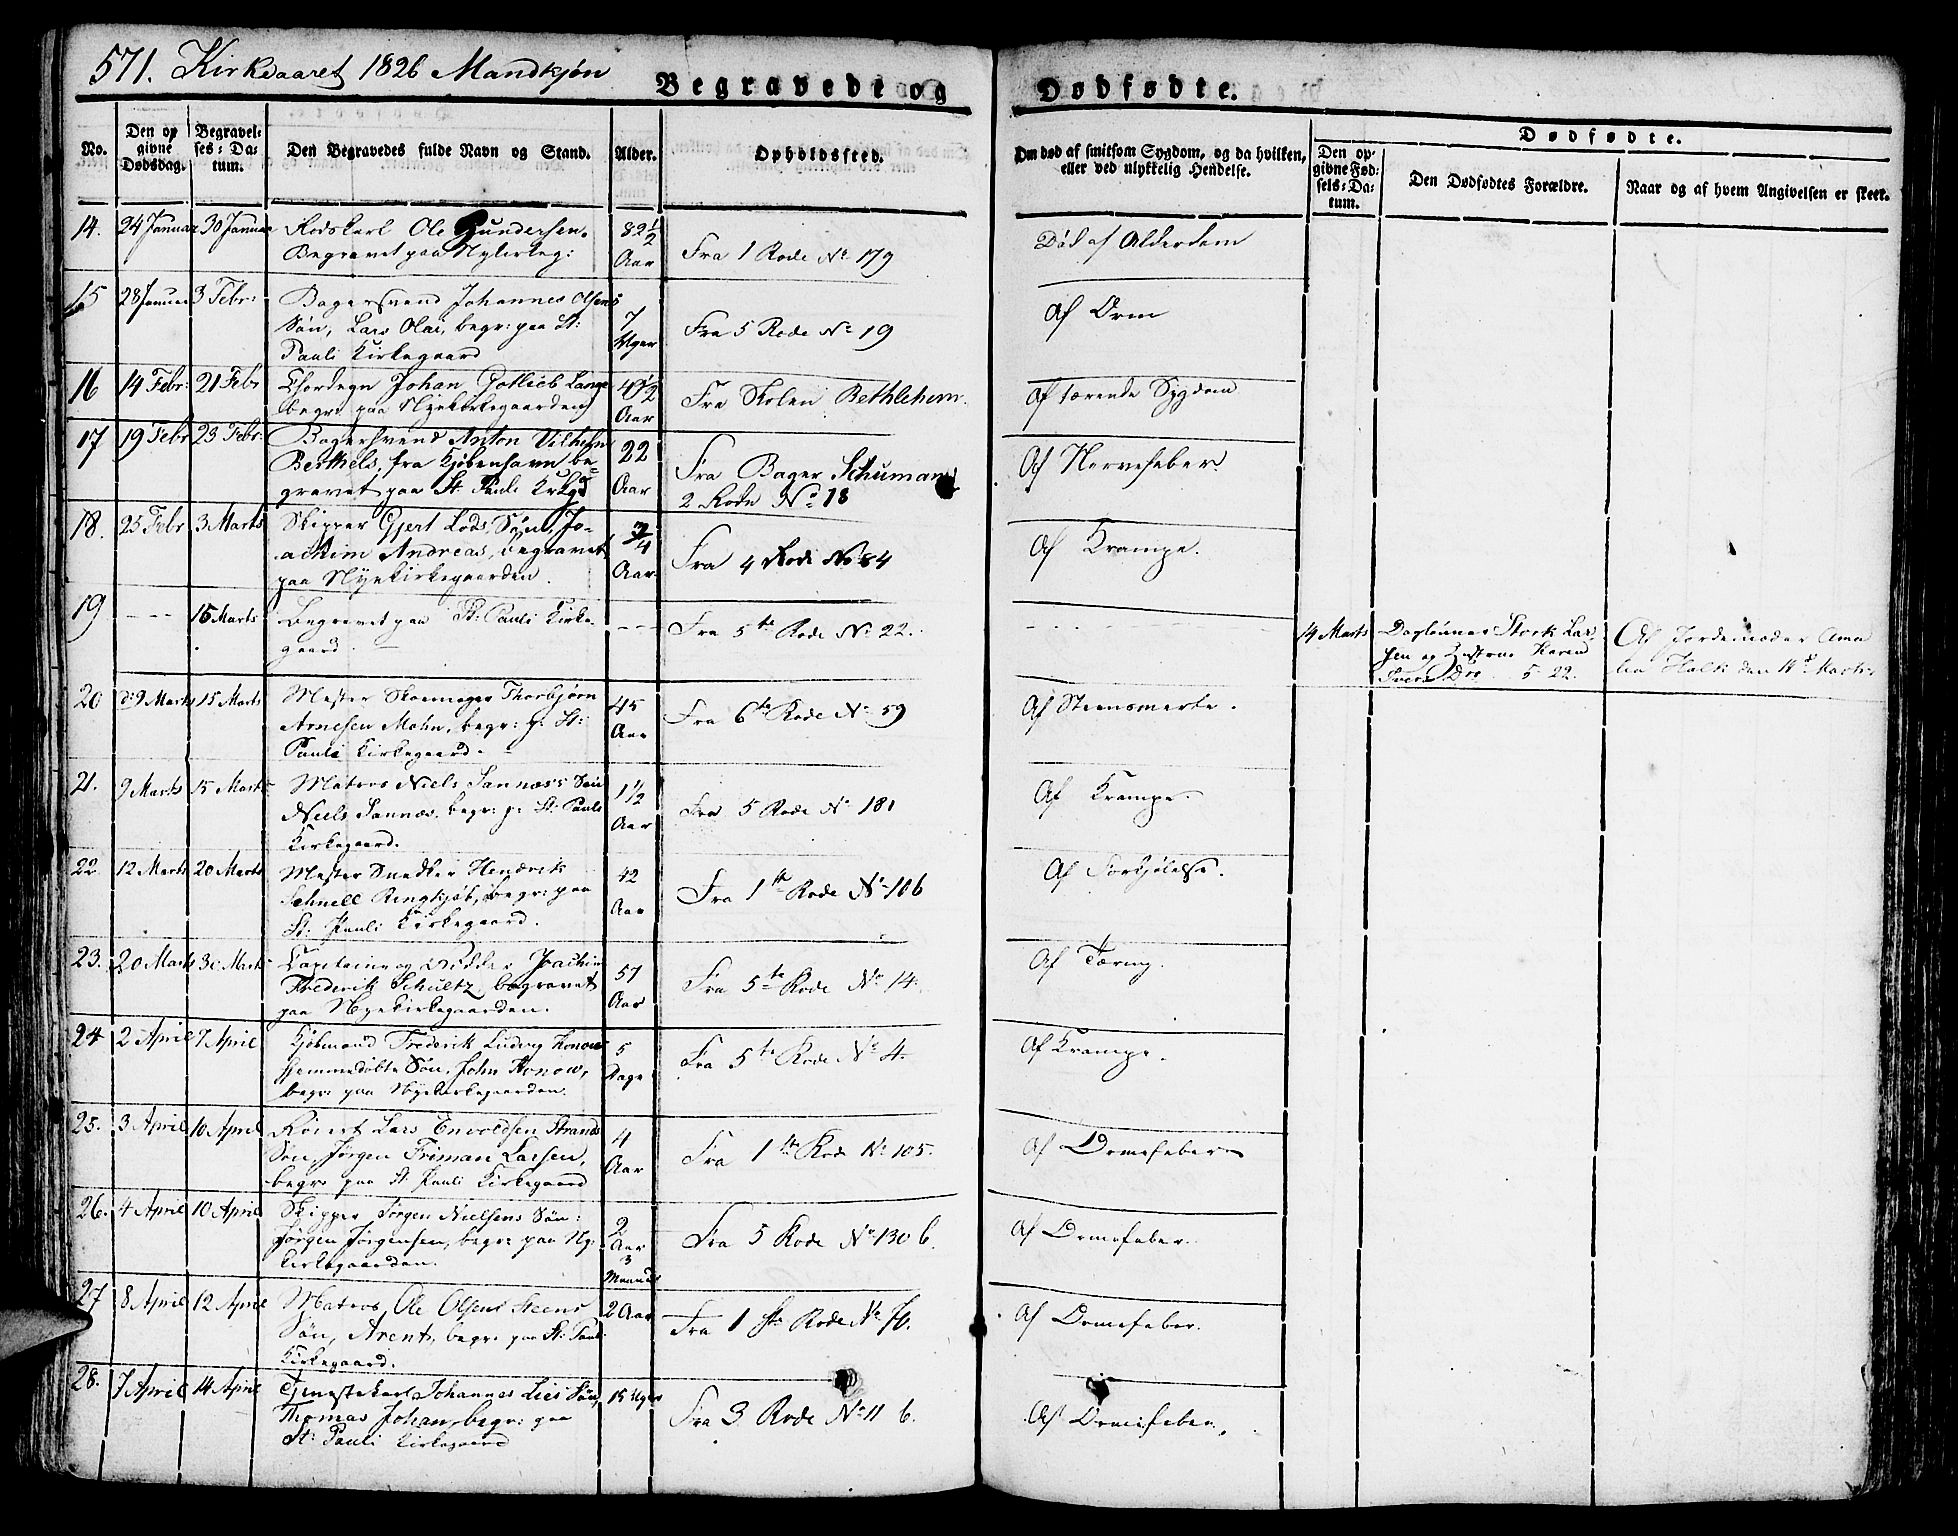 571. Kirkeaaret 1826 Mandkjøn
Begravede og Dødfødte.
No.
Den opgivne Dødsdag.
Begravelses-Datum.
Den Begravedes fulde Navn og Stand.
Alder.
Opholdssted.
Om død af smitsom Sygdom, og da hvilken, eller ved ulykkelig Hendelse.
Dødfødte.
Den opgivne Fødsels-Datum.
Den Dødfødtes Forældre.
Naar og af hvem Angivelsen er skeet.
14. 24 Januar 30 Januar Rodskarl Ole Gundersen. 82 1/2 Aar Fra 1 Rode No 179 Død af Alderdom
Begravet paa Nykirkeg:
15 28 Januar 3 Febr: Bagersvend Johannes Olsens 7 Uger Fra 5 Rode No 19 Af Orm
Søn, Lars Olai, begr: paa St:
Pauli Kirkegaard
16 14 Febr: 21 Febr Chordegn Johan Gotlieb Lange 40 1/2 Aar Fra Skolen Bethlehem. Af tærende Sygdom
begr: paa Nyekirkegaarden
17 19 Febr 23 Febr: Bagersvend Anton Vilhelm 22 Aar Fra Bager Schuman Af Nervefeber.
Berthels, fra Kjøbenhavn be- 2 Rode No 18
gravet paa St. Pauli Kirkgd
18. 25 Febr 3 Marts Skipper Gjert Lods Søn, Jo- 3/4 Aar Fra 4 Rode No 84 Af Krampe.
achim Andreas, begravet
paa Nyekirkegaarden.
19 --- 16 Marts Begravet paa St: Pauli Kirke- --- Fra 5te Rode No 22. 14 Marts Dagleiner Stork Lar- Af Jordemoder Ama
gaard. sen og Hustrue Karen lia Holk den 14de Marts.
Svens Dtr 5 22.
20 d: 9 Marts 15 Marts Mester Skomager Thorbjørn 45 Aar Fra 6te Rode No 59 Af Steensmerte.
Arnesen Mohn, begr: p: St:
Pauli Kirkegaard.
21. 9 Marts 15 Marts Matros Niels Sannæss Søn 1 1/2 Aar Fra 5 Rode No 181 Af Krampe.
Niels Sannæs, begr: p: St: Pauli
Kirkegaard.
22. 12 Marts 20 Marts Mester Snedker Hendrik 42 Aar Fra 1te Rode No 106 Af Forkjølelse.
Schnell Ringkjøb, begr: paa
St: Pauli Kirkegaard.
23. 20 Marts 30 Marts Capitaine og Ridder Joachim 57 Aar Fra 5te Rode No 14. Af Tæring.
Frederik Schultz, begravet
paa Nyekirkegaarden.
24 2 April 7 April Kjøbmand Frederik Ludvig Konows 5 Dage Fra 5te Rode No 4. Af Krampe.
hjemmedøbte Søn, John Konow,
begr: paa Nyekirkegaarden.
25. 3 April 10 April Røiert Lars Envoldsen Strands 4 Aar Fra 1te Rode No 105. Af Ormefeber
Søn, Jørgen Friman Larsen,
begr: paa St. Pauli Kirkegaard
26. 4 April 10 April Skipper Jørgen Nielsens Søn: 2 Aar 3 Maaned Fra 5 Rode No 130 b. Af Ormefeber.
Jørgen Jørgensen, begr: paa Ny-
kirkegaarden.
27 8 April 12 April Matros Ole Olsens Steens 2 Aar Fra 1ste Rode No 70. Af Ormefeber.
Søn, Arent, begr: paa St: Pauli
Kirkegaard.
28. 7 April 14 April Tjenestekarl Johannes Lies Søn, 15 Uger Fra 3 Rode No 11 b. Af Ormefeber.
Thomas Johan, begr: paa
St: Pauli Kirkegaard